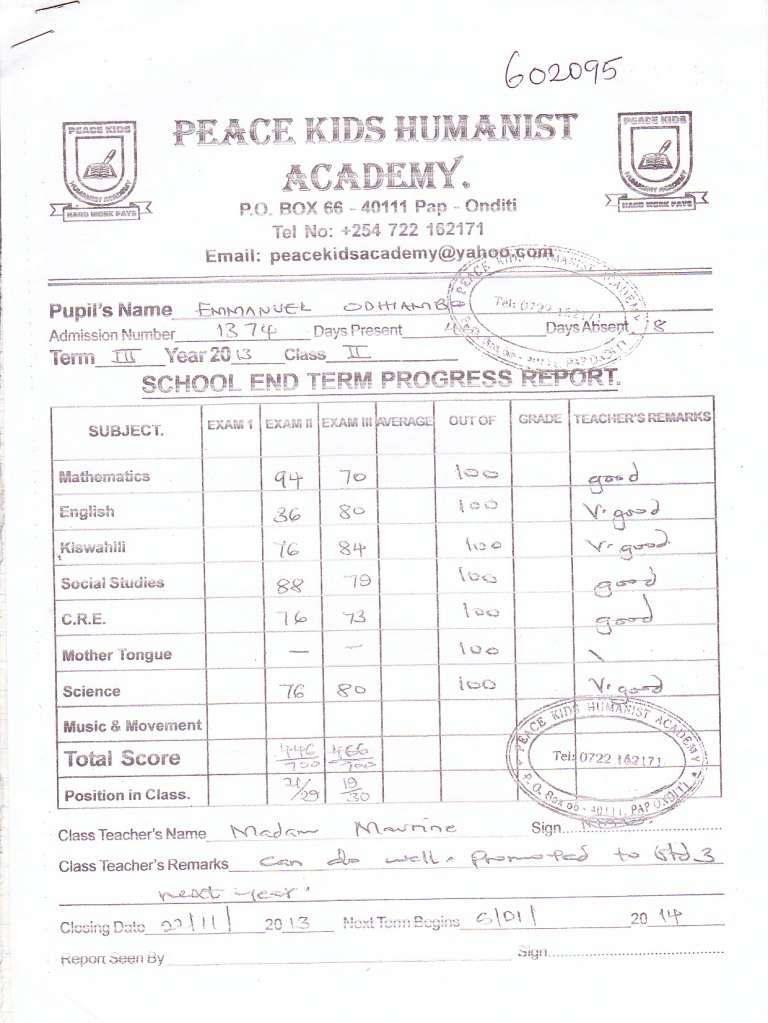 602095
PEACE KIDS
HUMANIST ACADEMY
HARD WORK PAYS
PEACE KIDS HUMANIST
ACADEMY.
PEACE KIDS
HUMANIST ACADEMY
HARD WORK PAYS
P.O. BOX 66 - 40111 Pap - Onditi
Tel No: +254 722 162171
Email: peacekidsacademy@yahoo.com
PEACE KIDS HUMANIST ACADEMY
Tel: 0722 162171
P.O. Box 66 - 40111, PAP ONDITI
Pupil's Name EMMANUEL ODHIAMBO
Admission Number 1374 Days Present Days Absent 8
Term III Year 2013 Class II
SCHOOL END TERM PROGRESS REPORT.
SUBJECT. EXAM 1 EXAM II EXAM III AVERAGE OUT OF GRADE TEACHER'S REMARKS
Mathematics 94 70 100 good
English 36 80 100 V. good
Kiswahili 76 84 100 V. good
Social Studies 88 79 100 good
C.R.E. 76 73 100 good
Mother Tongue — — 100 \
Science 76 80 100 V. good
Music & Movement
Total Score 446/700 466/700
Position in Class. 21/29 19/30
PEACE KIDS HUMANIST ACADEMY
Tel: 0722 162171
P.O. Box 66 - 40111, PAP ONDITI
Class Teacher's Name Madam Maurine Sign..
Class Teacher's Remarks Can do well. Promoted to Std 3
next year.
Closing Date 22/11/ 2013 Next Term Begins 6/01/ 2014
Report Seen By Sign